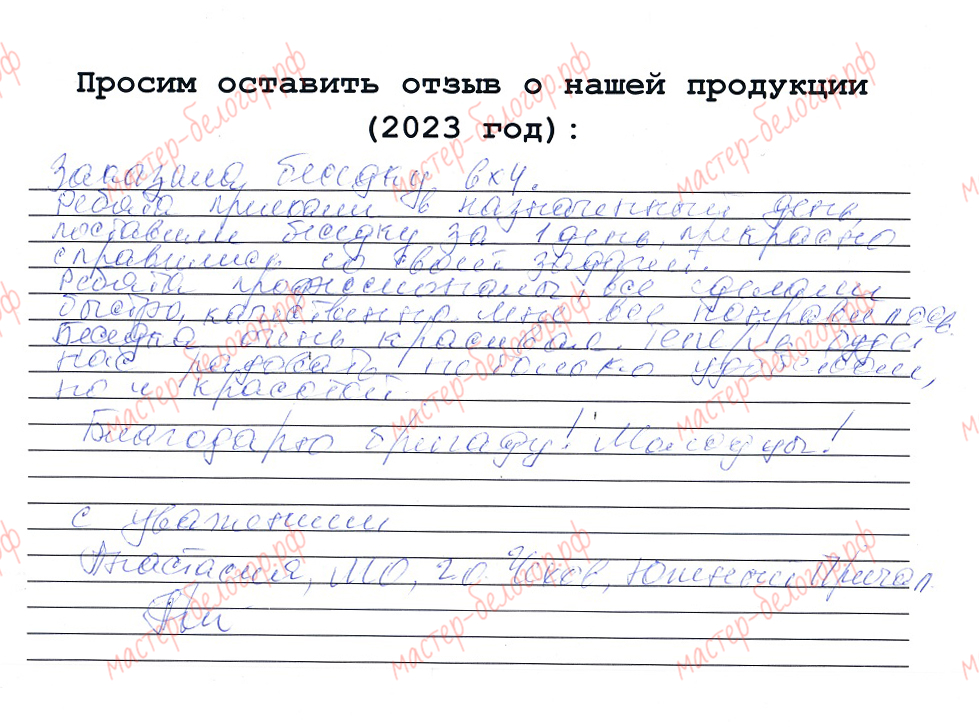 Просим оставить отзыв о нашей продукции
(2023 год):
Заказала беседку 8х4.
Ребята приехали в назначенный день,
поставили беседку за 1 день, прекрасно
справились со своей задачей.
Ребята профессионалы, все сделали
быстро, качественно. Мне все понравилось.
Беседка очень красивая. Теперь будет
нас радовать не только удобством,
но и красотой.
Благодарю бригаду! Молодцы!
с уважением
Анастасия, МО, г.о. Чехов, Южный Причал.
мастер-белогор.рф